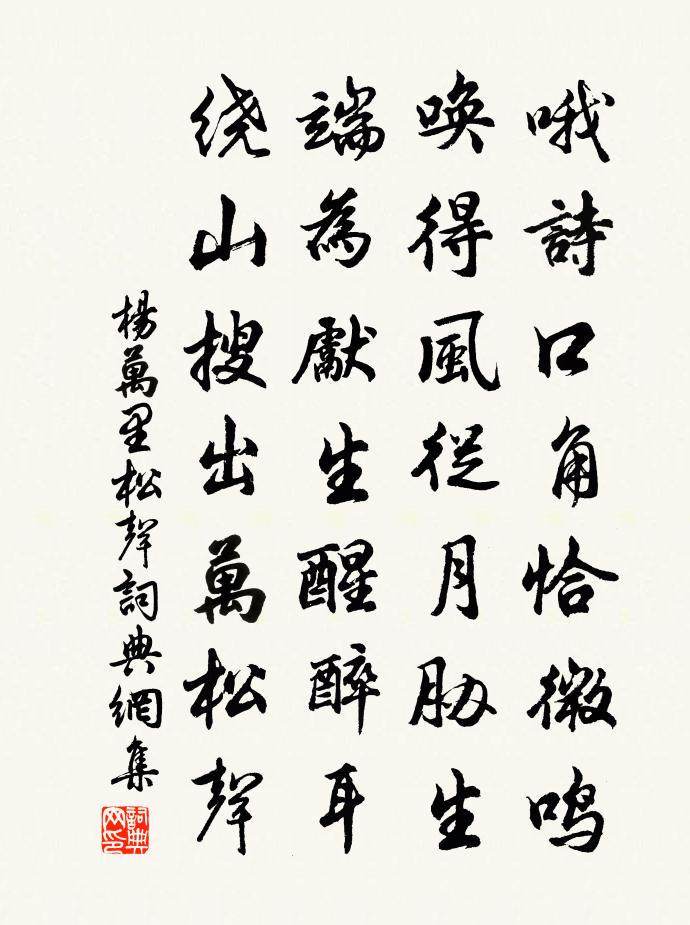 哦詩口角恰微鳴
喚得風從月胁生
端為獻生醒醉耳
绕山搜出萬松聲
楊萬里松聲詞典網集
詞典網印